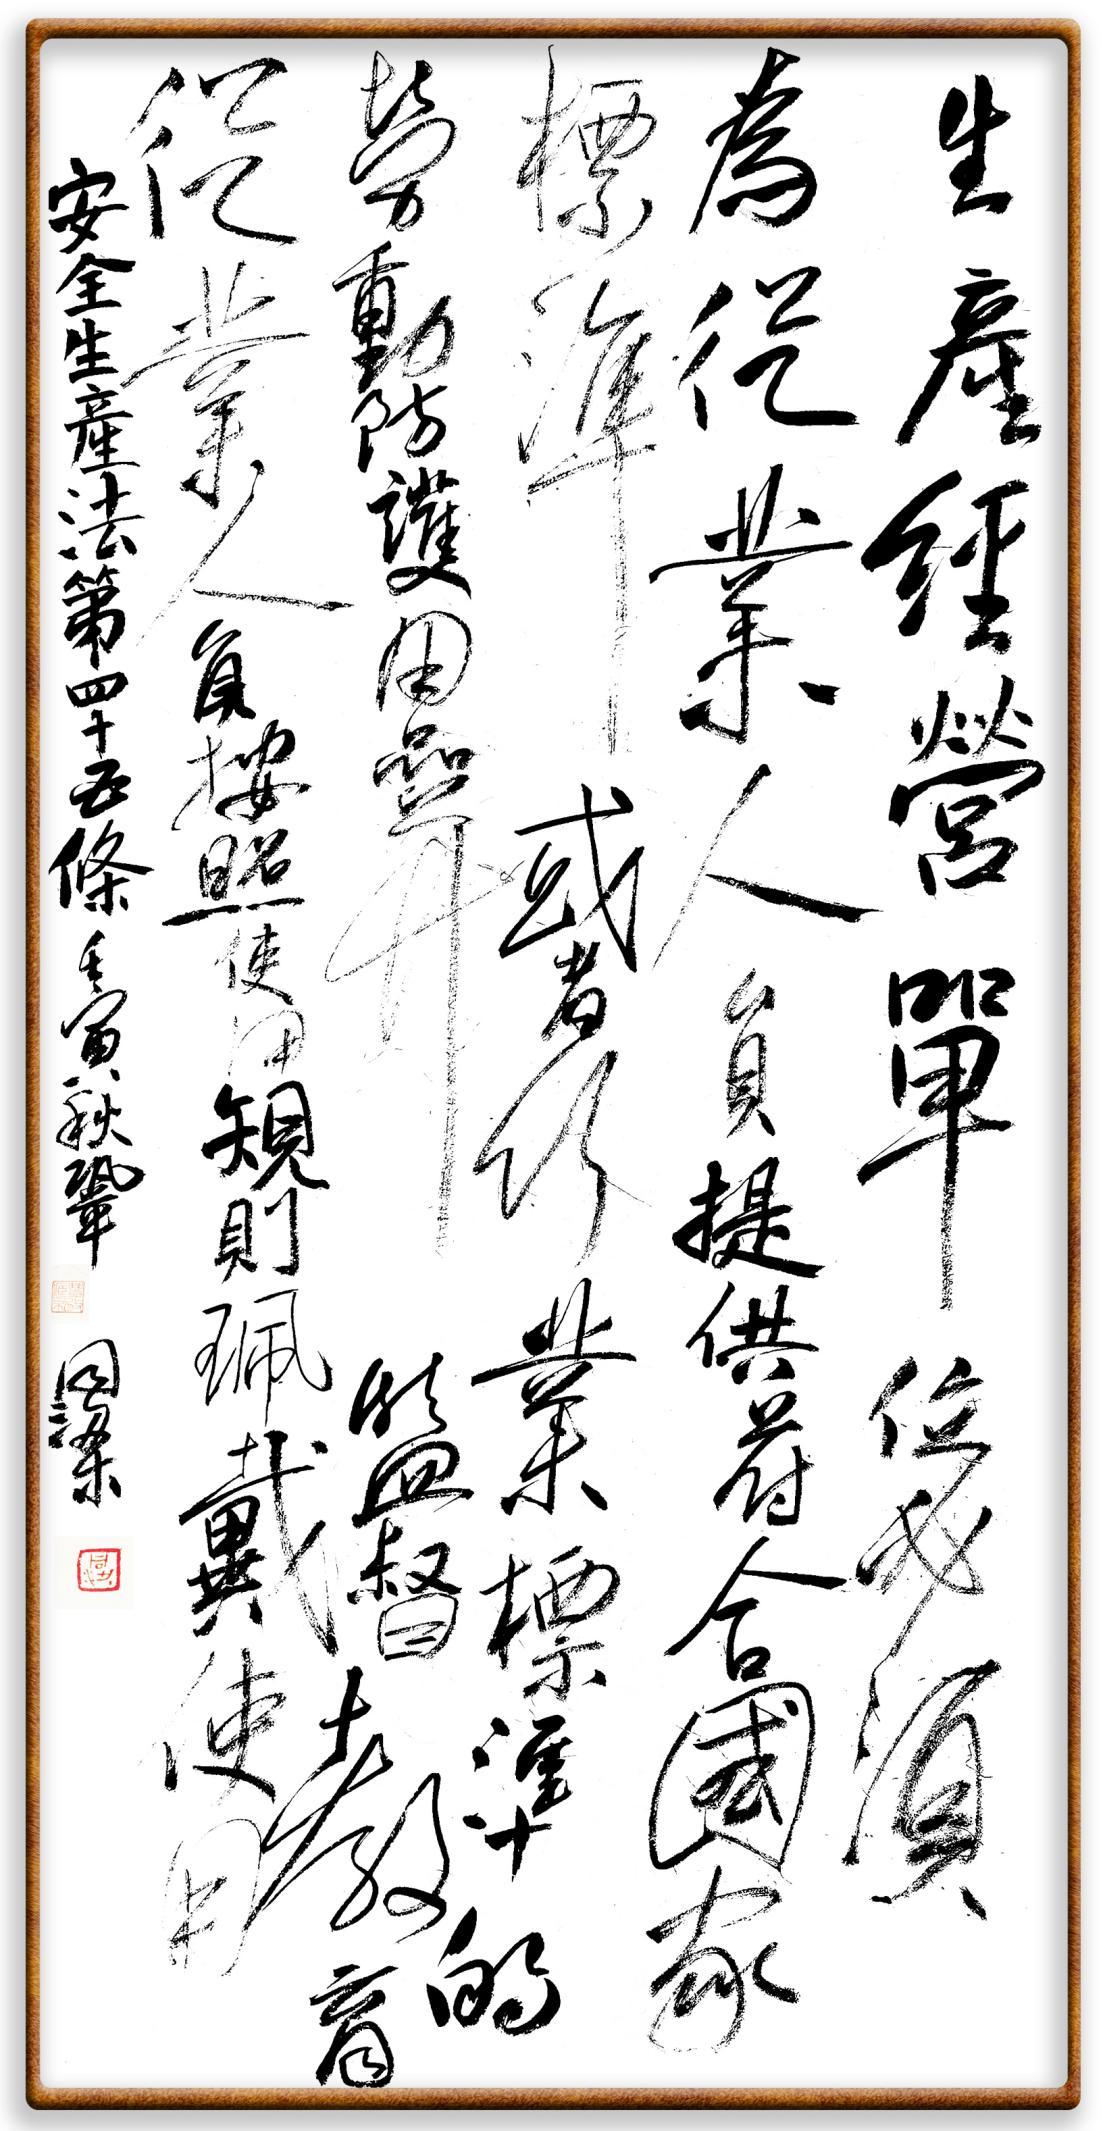 生產經營單位必須
為從業人員提供符合國家
標準或者行業標準的
勞動防護用品并監督教育
從業人員按照使用規則珮戴使用
安全生產法第四十五條 壬寅秋鞏